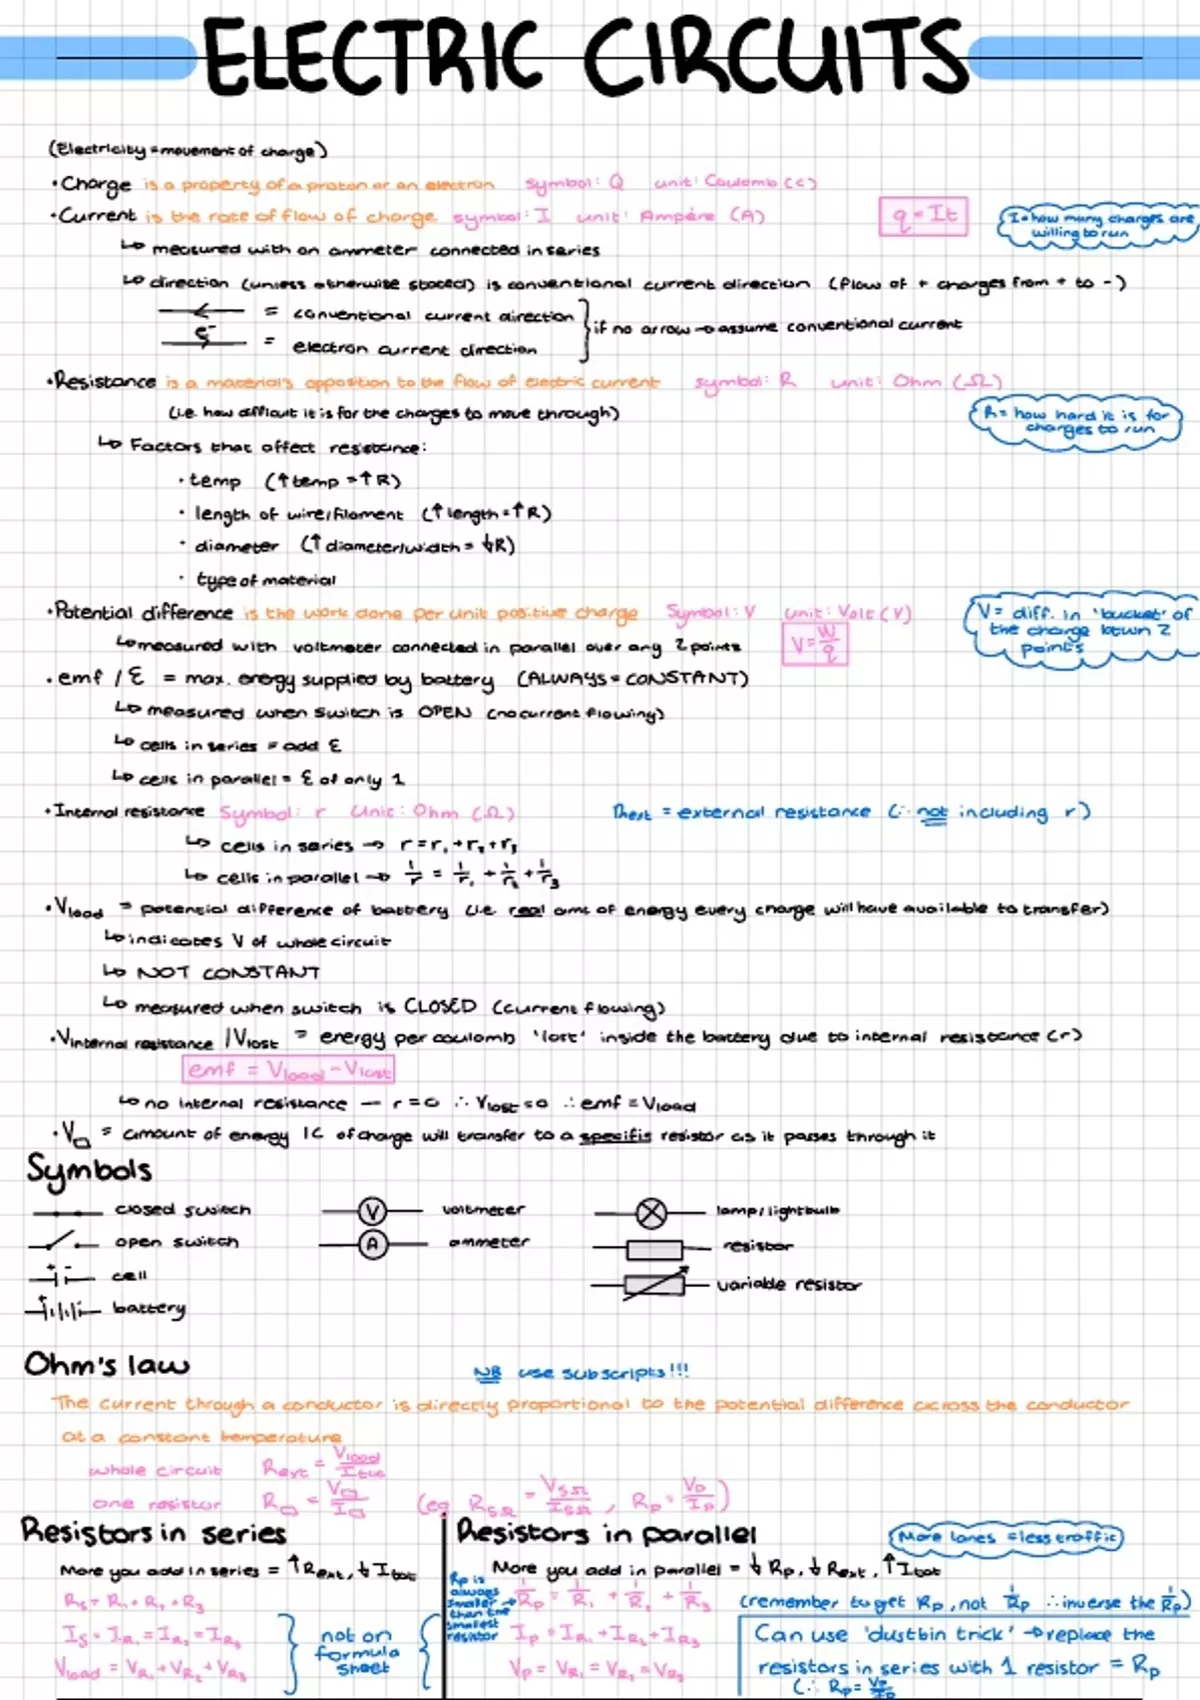 ELECTRIC CIRCUITS
(Electricity = movement of charge)
• Charge is a property of a proton or an electron symbol: Q unit: Coulomb (C)
• Current is the rate of flow of charge symbol: I unit: Ampére (A) q = It
I = how many charges are
willing to run
↳ measured with an ammeter connected in series
↳ direction (unless otherwise stated) is conventional current direction (flow of + charges from + to -)
= conventional current direction
e⁻ = electron current direction
if no arrow → assume conventional current
• Resistance is a material's opposition to the flow of electric current symbol: R unit: Ohm (Ω)
(i.e. how difficult it is for the charges to move through)
R = how hard it is for
charges to run
↳ Factors that affect resistance:
• temp (↑ temp = ↑ R)
• length of wire/filament (↑ length = ↑ R)
• diameter (↑ diameter/width = ↓ R)
• type of material
• Potential difference is the work done per unit positive charge Symbol: V unit: Volt (V)
V = W/q
V = diff. in 'bucket' of
the charge btwn 2
points
↳ measured with voltmeter connected in parallel over any 2 points
• emf / ε = max. energy supplied by battery (ALWAYS = CONSTANT)
↳ measured when switch is OPEN (no current flowing)
↳ cells in series = add ε
↳ cells in parallel = ε of only 1
• Internal resistance Symbol: r Unit: Ohm (Ω) Rext = external resistance (∴ not including r)
↳ cells in series → r = r₁ + r₂ + r₃
↳ cells in parallel → 1/r = 1/r₁ + 1/r₂ + 1/r₃
• Vload = potential difference of battery (i.e. real amt of energy every charge will have available to transfer)
↳ indicates V of whole circuit
↳ NOT CONSTANT
↳ measured when switch is CLOSED (current flowing)
• Vinternal resistance / Vlost = energy per coulomb 'lost' inside the battery due to internal resistance (r)
emf = Vload - Vlost
↳ no internal resistance — r = 0 ∴ Vlost = 0 ∴ emf = Vload
• V▭ = amount of energy 1C of charge will transfer to a specific resistor as it passes through it
Symbols
closed switch V voltmeter lamp/lightbulb
open switch A ammeter resistor
cell variable resistor
battery
Ohm's law NB use subscripts!!!
The current through a conductor is directly proportional to the potential difference across the conductor
at a constant temperature
whole circuit Rext = Vload/Itot
one resistor R▭ = V▭/I▭ (eg R5Ω = V5Ω/I5Ω , Rp = Vp/Ip)
Resistors in series
More you add in series = ↑ Rext, ↓ Itot
Rs = R₁ + R₂ + R₃
Is = IR₁ = IR₂ = IR₃
Vload = VR₁ + VR₂ + VR₃
not on
formula
sheet
Resistors in parallel
More lanes = less traffic
More you add in parallel = ↓ Rp, ↓ Rext, ↑ Itot
Rp is
always
smaller
than the
smallest
resistor
1/Rp = 1/R₁ + 1/R₂ + 1/R₃
(remember to get Rp, not 1/Rp ∴ inverse the 1/Rp)
Ip = IR₁ + IR₂ + IR₃
Vp = VR₁ = VR₂ = VR₃
Can use 'dustbin trick' → replace the
resistors in series with 1 resistor = Rp
(∴ Rp = Vp/Ip